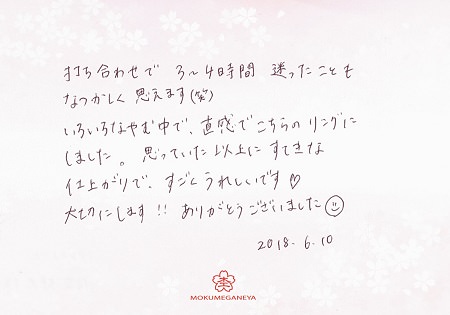 打ち合わせで 3~4時間 迷ったことも
なつかしく 思えます(笑)
いろいろなやむ中で、直感でこちらの リングに
しました。思っていた以上に すてきな
仕上がりで、すごくうれしいです♡
大切にします!! ありがとうございました☺
2018. 6. 10
MOKUMEGANEYA